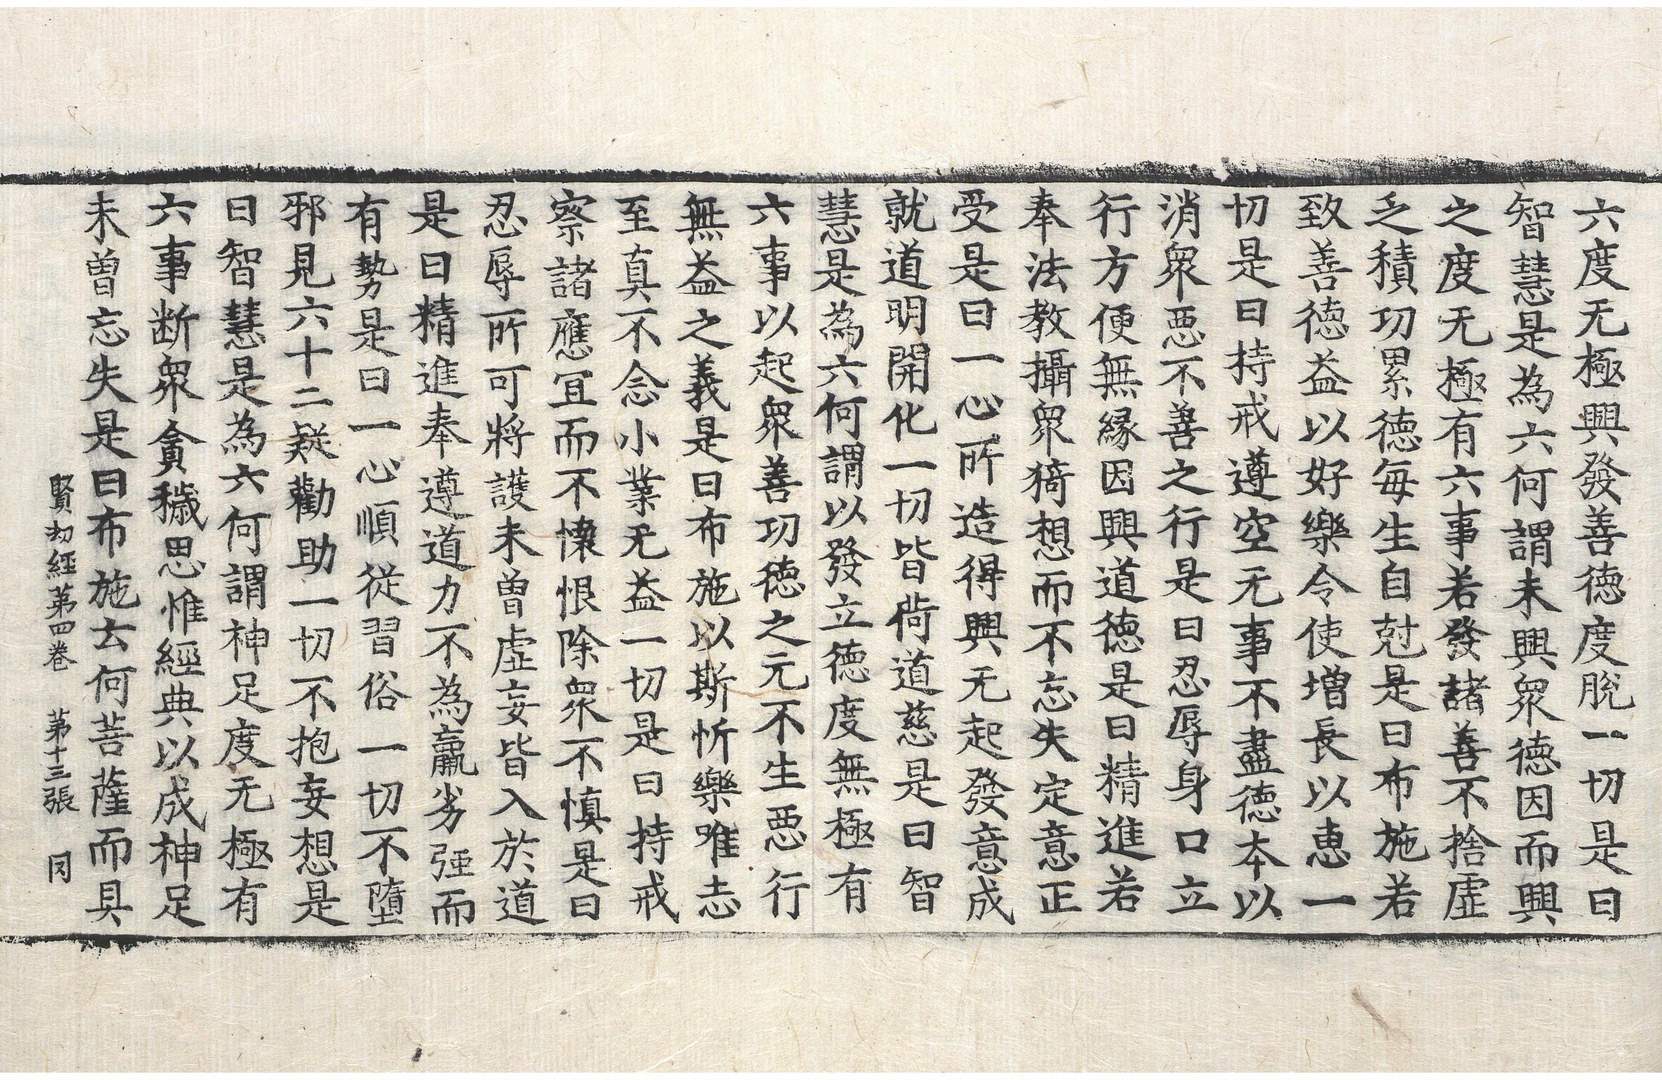 六度无極興發善德度脫一切是曰
智慧是為六何謂未興衆德因而興
之度无極有六事若發諸善不捨虛
乏積功累德每生自尅是曰布施若
致善德益以好樂令使增長以惠一
切是曰持戒遵空无事不盡德本以
消衆惡不善之行是曰忍辱身口立
行方便無緣因興道德是曰精進若
奉法教攝衆猗想而不忘失定意正
受是曰一心所造得興无起發意成
就道明開化一切皆荷道慈是曰智
慧是為六何謂以發立德度無極有
六事以起衆善功德之元不生惡行
無益之義是曰布施以斯忻樂唯志
至真不念小業无益一切是曰持戒
察諸應宜而不懷恨除衆不慎是曰
忍辱所可將護未曾虛妄皆入於道
是曰精進奉遵道力不為羸劣强而
有勢是曰一心順從習俗一切不墮
邪見六十二疑勸助一切不抱妄想是
曰智慧是為六何謂神足度无極有
六事断衆貪穢思惟經典以成神足
未曾忘失是曰布施去何菩薩而具
賢劫經第四卷 第十三張 同